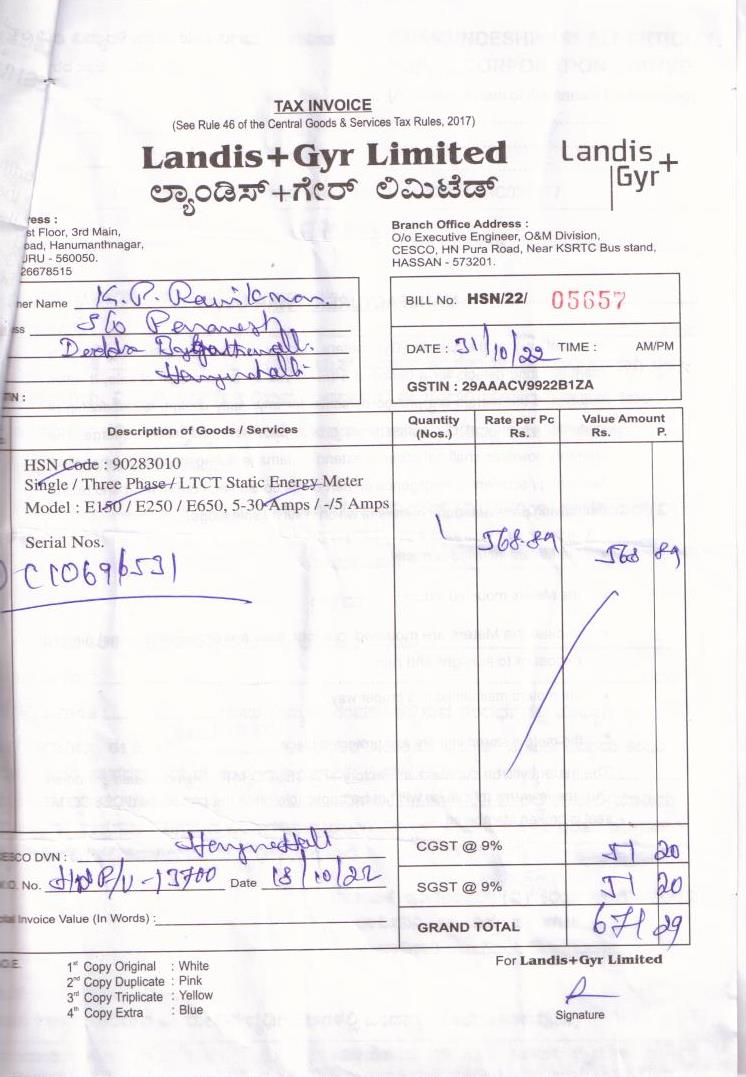 TAX INVOICE
(See Rule 46 of the Central Goods & Services Tax Rules, 2017)
Landis+Gyr Limited
ಲ್ಯಾಂಡಿಸ್+ಗೇರ್ ಲಿಮಿಟೆಡ್
Landis Gyr+
ress :
st Floor, 3rd Main,
oad, Hanumanthnagar,
URU - 560050.
26678515
Branch Office Address :
O/o Executive Engineer, O&M Division,
CESCO, HN Pura Road, Near KSRTC Bus stand,
HASSAN - 573201.
ner Name K.P. Ravikumar
ess S/o
Dodda
TIN :
BILL No. HSN/22/ 05657
DATE : 31/10/22 TIME : AM/PM
GSTIN : 29AAACV9922B1ZA
Description of Goods / Services Quantity (Nos.) Rate per Pc Rs. Value Amount Rs. P.
HSN Code : 90283010
Single / Three Phase / LTCT Static Energy Meter
Model : E150 / E250 / E650, 5-30 Amps / -/5 Amps
1 568.89 568 89
Serial Nos.
C10696531
ESCO DVN :
CGST @ 9% 51 20
O. No. 13700 Date 18/10/22
SGST @ 9% 51 20
otal Invoice Value (In Words) :
GRAND TOTAL 671 29
O.E.
1st Copy Original : White
2nd Copy Duplicate : Pink
3rd Copy Triplicate : Yellow
4th Copy Extra : Blue
For Landis+Gyr Limited
Signature